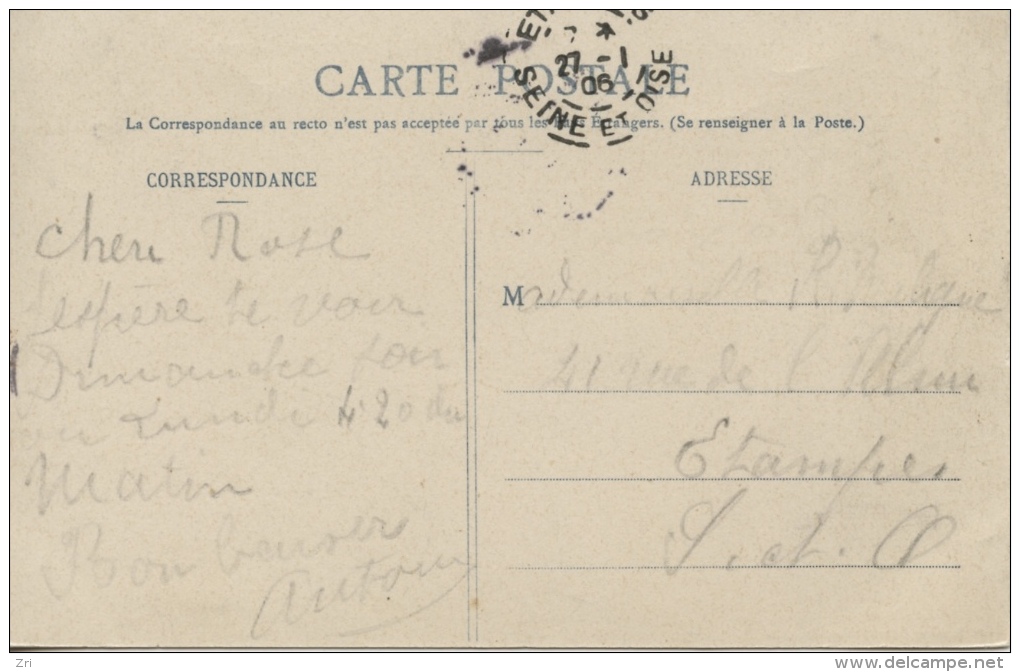 CARTE POSTALE
La Correspondance au recto n'est pas acceptée par tous les Pays Étrangers. (Se renseigner à la Poste.)
27 - 1
06
SEINE ET OISE
CORRESPONDANCE
cheri Rose
espère te voir
Dimanche
Lundi 4.20 du
Matin
Bon baiser
ADRESSE
Mademoiselle R.
41 rue de
Etampes
S. et. O
Zri
www.delcampe.net